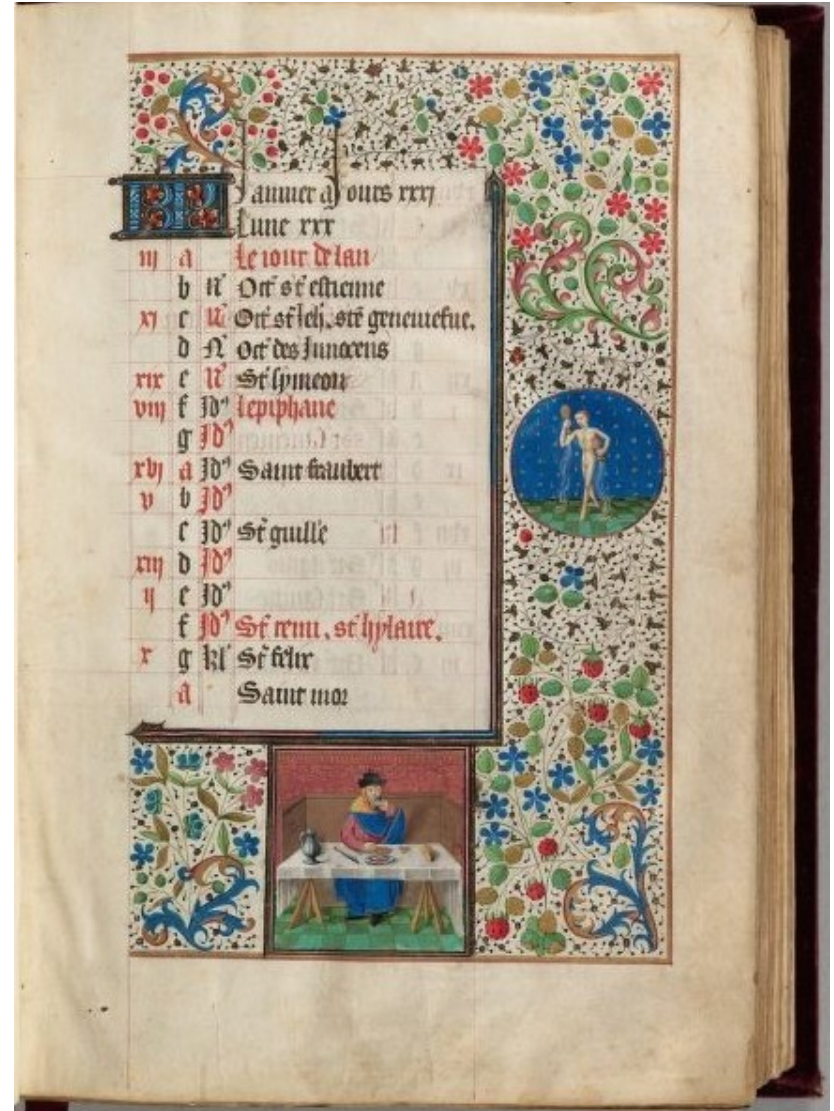 KL Januier a Jours xxxj
Lune xxx
iij a Le iour de lan
b N Oct st estienne
xj c N Oct st Jeh. ste geneuiefue.
d N Oct des Innocens
xix e N St symeon
viij f Id lepiphane
g Id
xvj a Id Saint fraubert
v b Id
c Id St guille
xiij d Id
ij e Id
f Id St remi. st hylaire.
x g kl St felix
a Saint mor